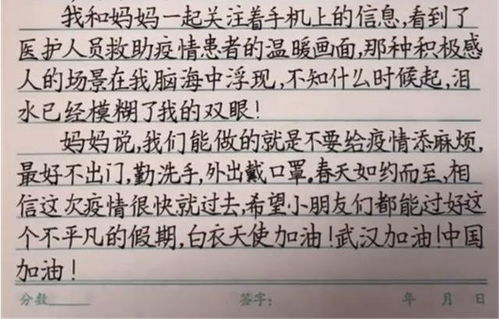 我和妈妈一起关注着手机上的信息,看到了
医护人员救助疫情患者的温暖画面,那种积极感
人的场景在我脑海中浮现,不知什么时候起,泪
水已经模糊了我的双眼!
妈妈说,我们能做的就是不要给疫情添麻烦,
最好不出门,勤洗手,外出戴口罩。春天如约而至,相
信这次疫情很快就过去,希望小朋友们都能过好这
个不平凡的假期,白衣天使加油!武汉加油!中国
加油!
分数 签字: 年 月 日